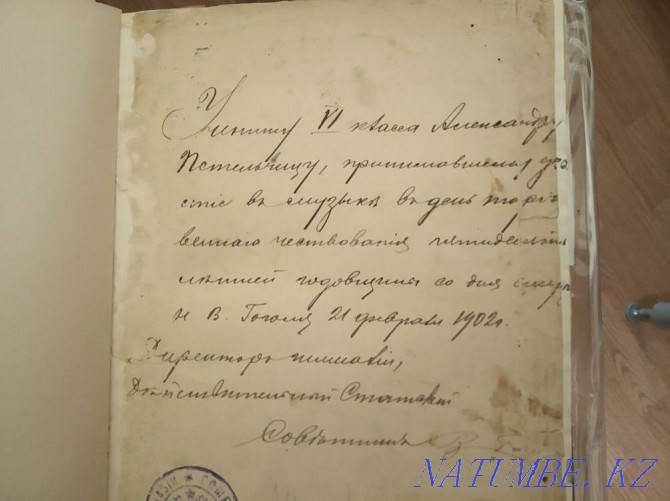 Ученику VI класса Александру
Петельчицу, принимавшему уча
стіе въ музыкѣ въ день торже
веннаго чествованія пятидесяти
лѣтней годовщины со дня смерти
Н. В. Гоголя 21 февраля 1902 г.
Директоръ гимназіи,
Дѣйствительный Статскій
Совѣтникъ
NATUMBE.KZ